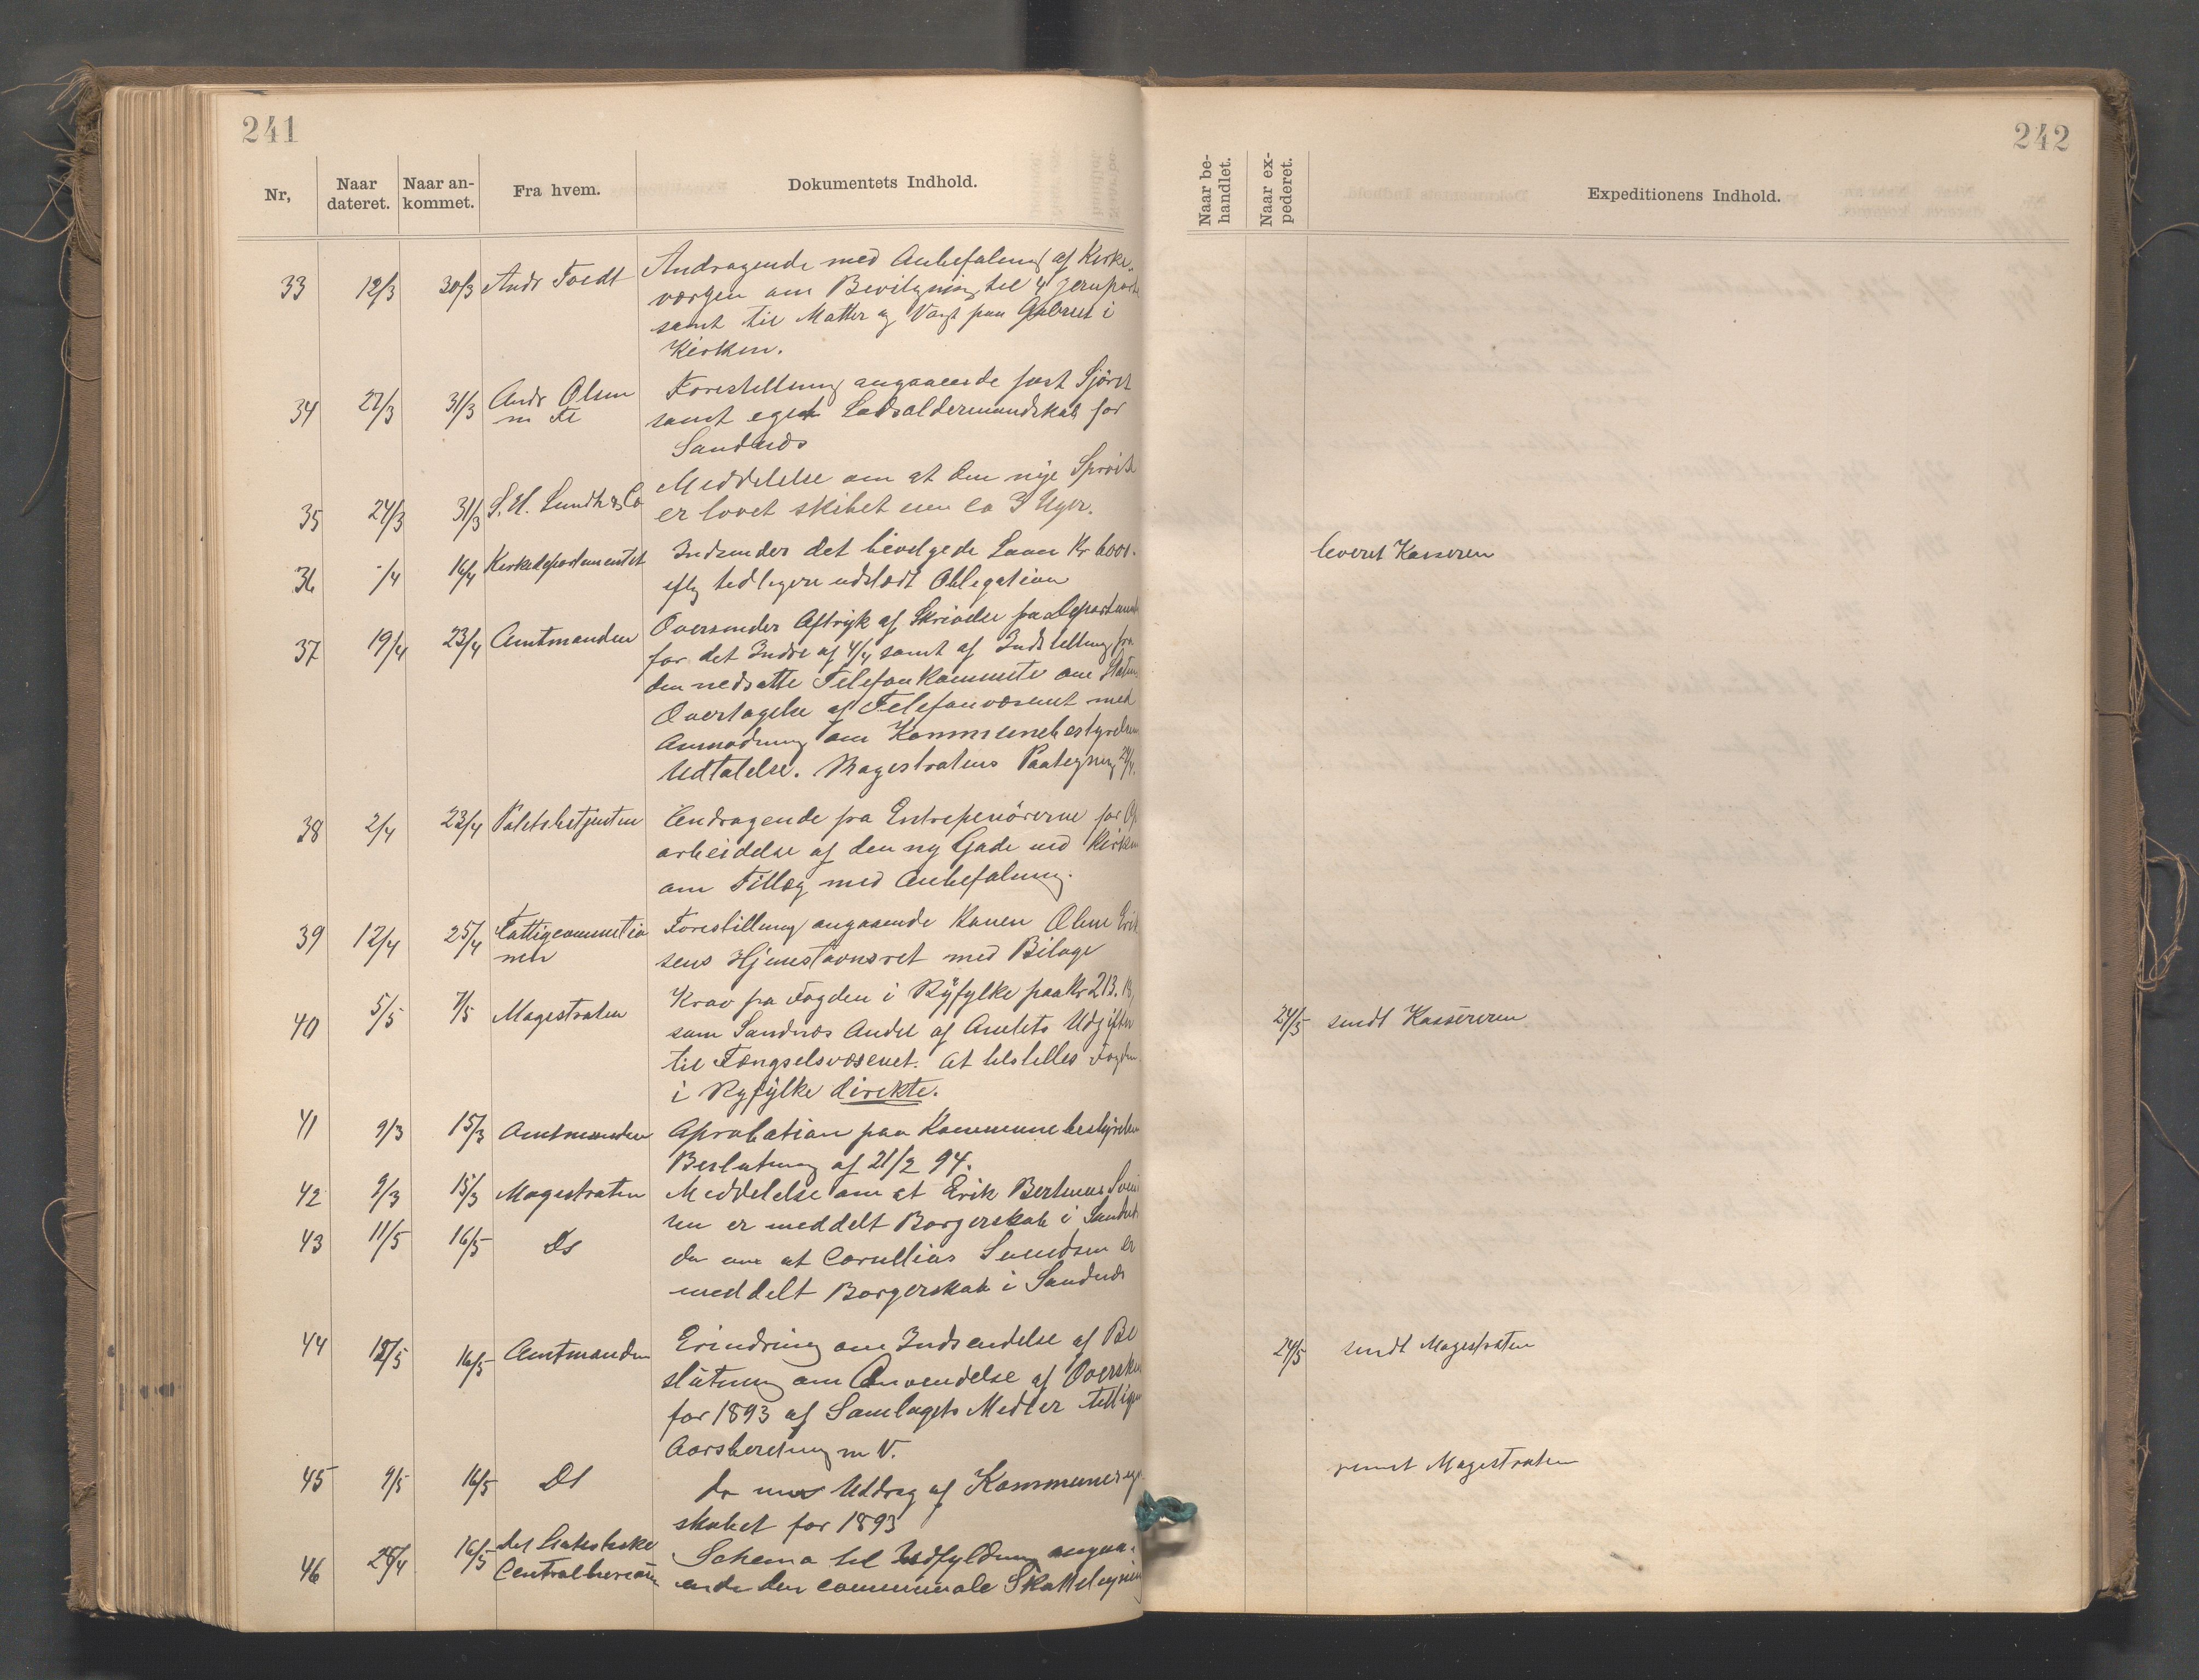 241
Nr,
Naar dateret.
Naar ankommet.
Fra hvem.
Dokumentets Indhold.
33 12/3 30/3 Andr Foedt Andragende med Anbefaling af Kirke-
værgen om Bevilgning til 4
samt til Matter og Vagt paa i
Kirken.
34 27/3 31/3 Andr Olsen m Fl Forestilling angaaende fast Sjöret
samt eget Lodsaldermandskab for
Sandnæs
35 24/3 31/3 S. H. Lundh & Co Meddelelse om at den nye Spröite
er lovet skibet om ca 3 Uger.
36 -/4 16/4 Kirkedepartementet Indsender det bevilgede Laan Kr 6000.
efter tidligere udstædt Obligation
37 19/4 23/4 Amtmanden Oversender Aftryk af Skrivelse fra Departement
for det Indre af 4/4 samt af Indstilling fra
den nedsatte Telefonkommite om Statens
Overtagelse af Telefonvæsenet med
Anmodning om Kommunebestyrelsens
Udtalelse. Magistratens Paategning 24/4.
38 2/4 23/4 Politibetjenten Andragende fra Entrepenörerne for Op
arbeidelse af den ny Gade ved Kirken
om Tillæg med Anbefaling.
39 12/4 25/4 Fattigcommissionen Forestilling angaaende Konen Oline Erik
sens Hjemstavnsret med Bilage
40 5/5 7/5 Magistraten Krav fra Fogden i Ryfylke paa Kr 213.
som Sandnæs Andel af Amtets Udgifter
til Fængselsvæsenet. At tilstilles Fogden
i Ryfylke direkte.
41 9/3 15/3 Amtmanden Aprobation paa Kommunebestyrelsen
Beslutning af 21/2 94.
42 9/3 15/3 Magistraten Meddelelse om at Erik Bertinus
sen er meddelt Borgerskab i Sandnæs
43 11/5 16/5 Ds do om at Cornelius Svendsen er
meddelt Borgerskab i Sandnæs
44 12/5 16/5 Amtmanden Erindring om Indsendelse af Be
slutning om Anvendelse af Oversku
for 1893 af Samlagets Midler tilligem
Aarsberetning m V.
45 9/5 16/5 Ds do Uddrag af Kommuneregn
skabet for 1893
46 28/4 16/5 det Statistiske Centralbureau Schema til Udfyldning angaa-
ende den communale Skatteligning
242
Naar behandlet.
Naar expederet.
Expeditionens Indhold.
leveret Kasseren
24/5 sendt Kassereren
24/5 sendt Magistraten
Magistraten